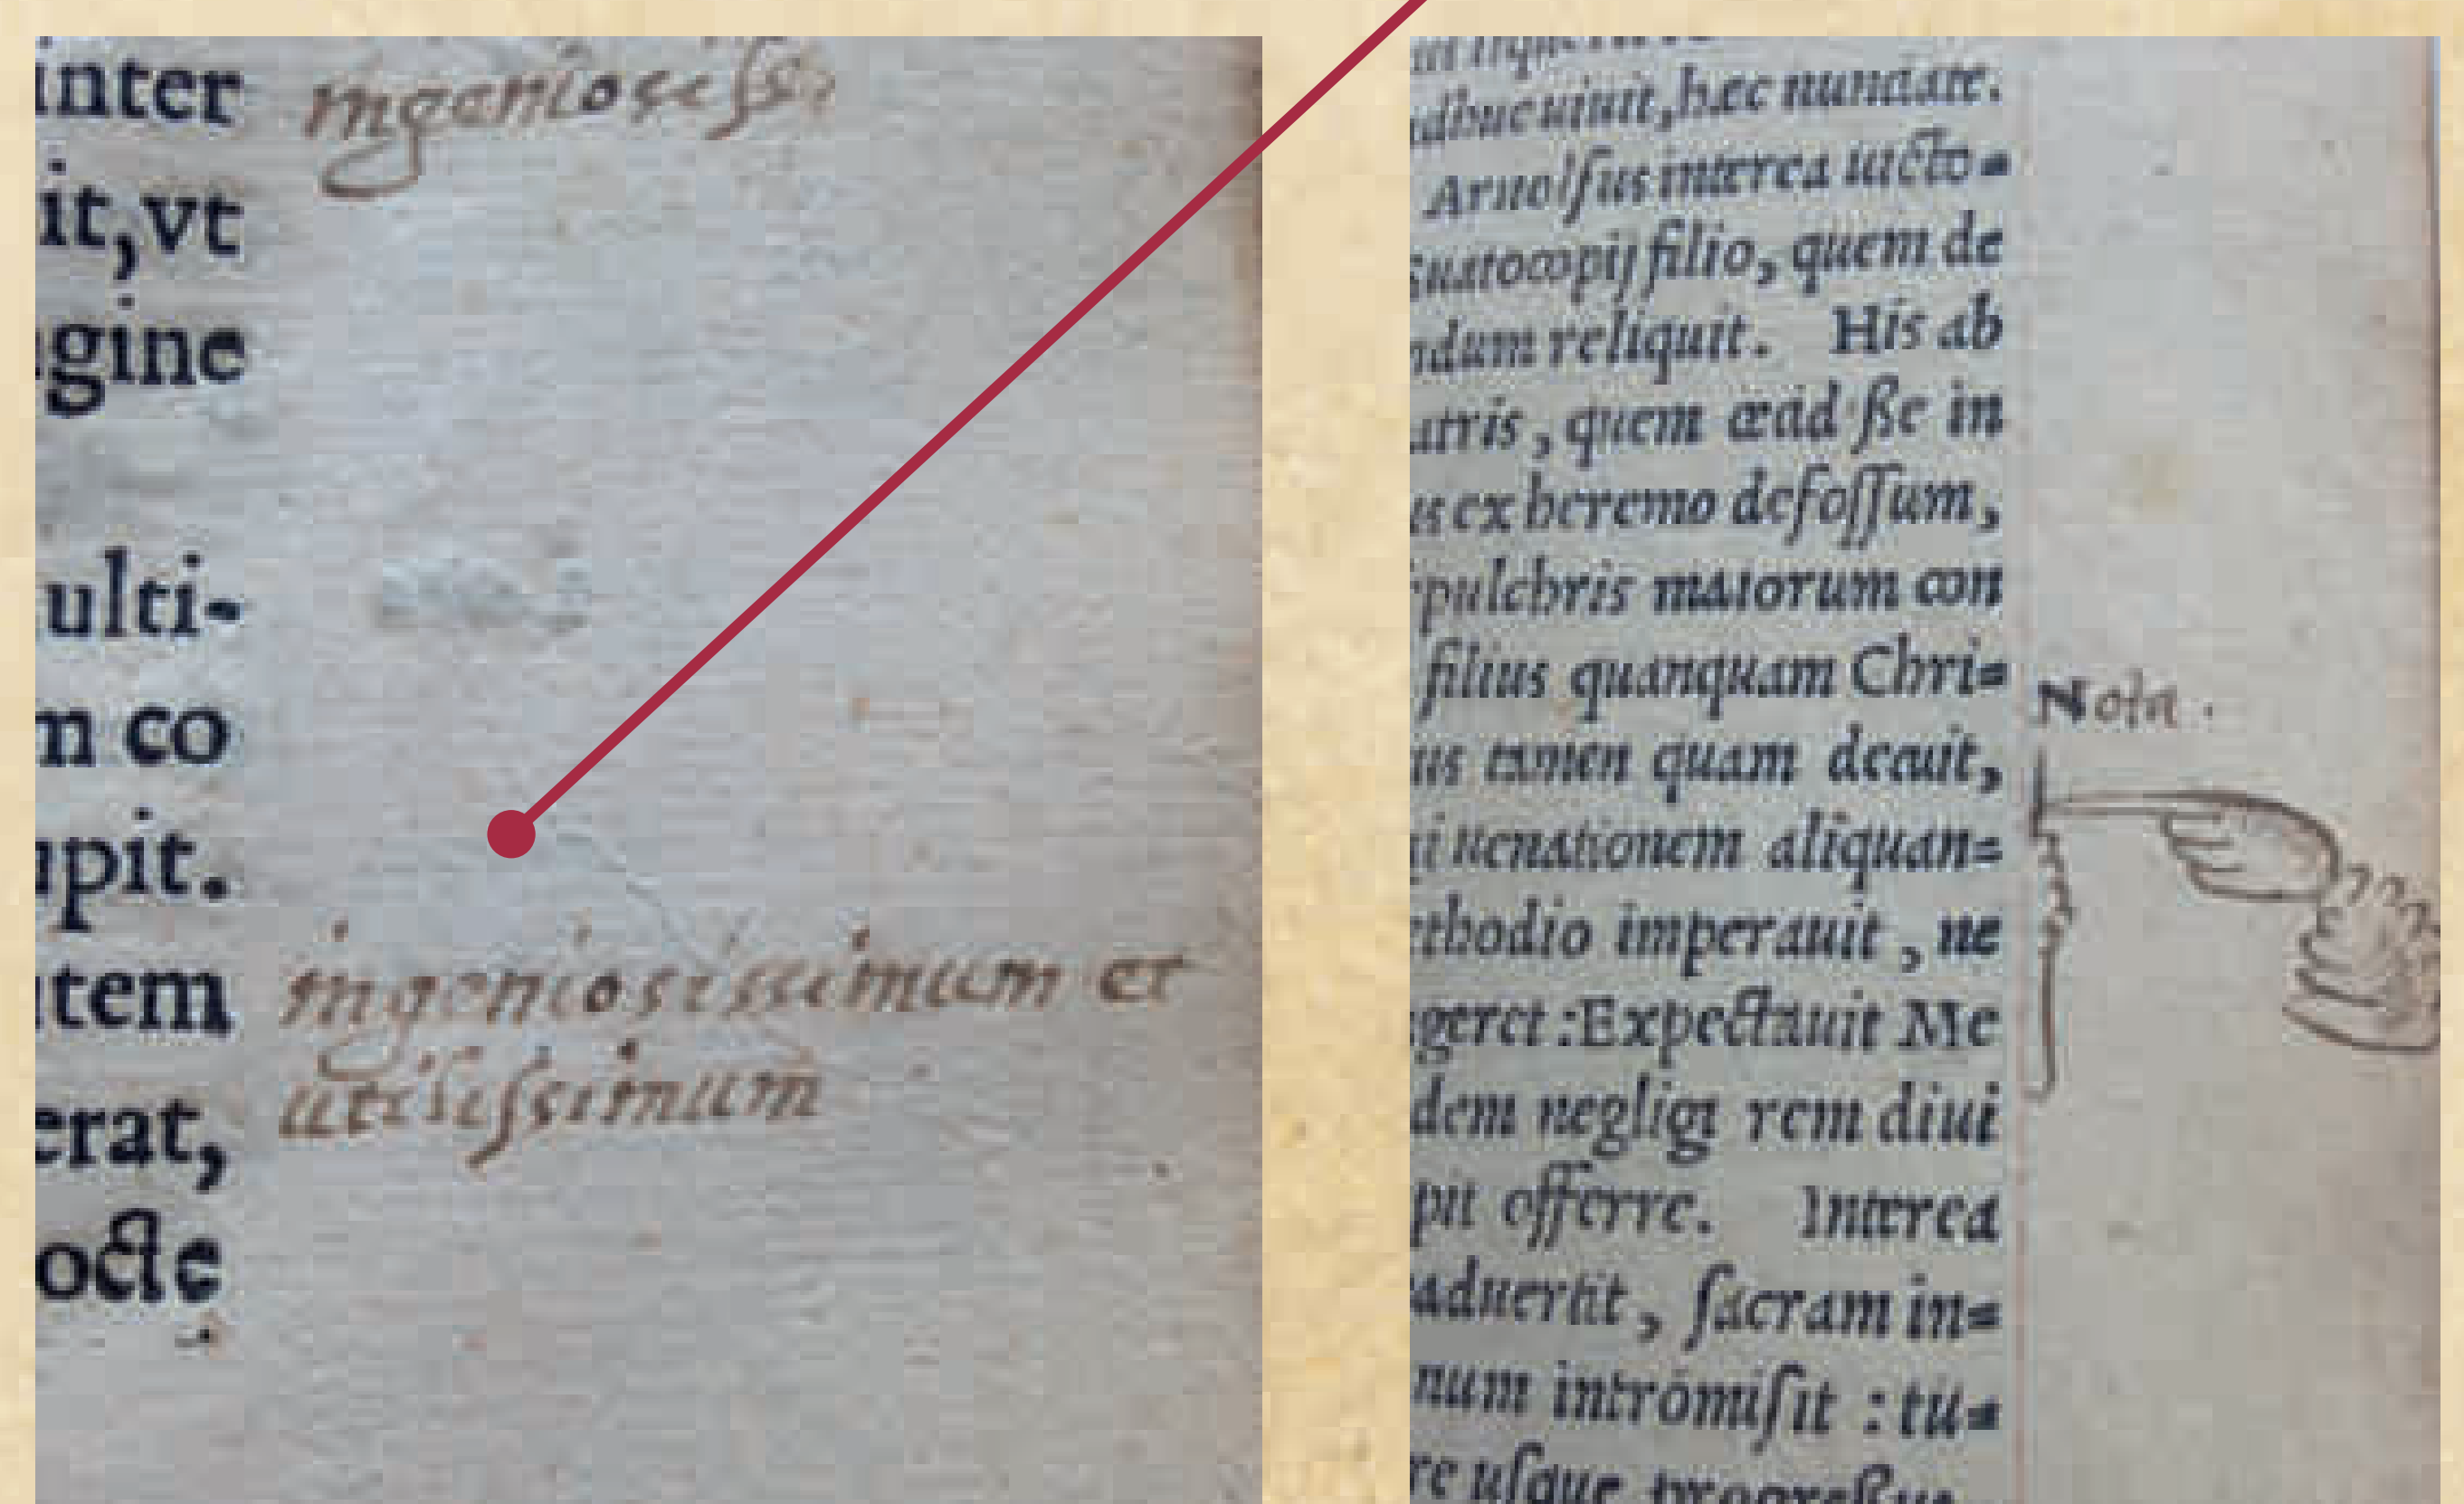 inter
ingeniosiss:
it,vt
gine
ulti-
m co
upit.
tem
ingeniosissimum et
utilissimum
erat,
ocle
adhuc uiuit, hæc nunciare.
Arnolfus interea uicto=
suatocopij filio, quem de
ndum reliquit. His ab
atris, quem ædißse in
us ex heremo defossum,
pulchris maiorum con
filius quanquam Chri=
us tamen quam decuit,
uenationem aliquan=
thodio imperauit, ne
geret: Expectauit Me
dem negligi rem diui
pit offerre. Interea
aduertit, sacram in=
num intromisit : tu=
re usque progressus
Nota.